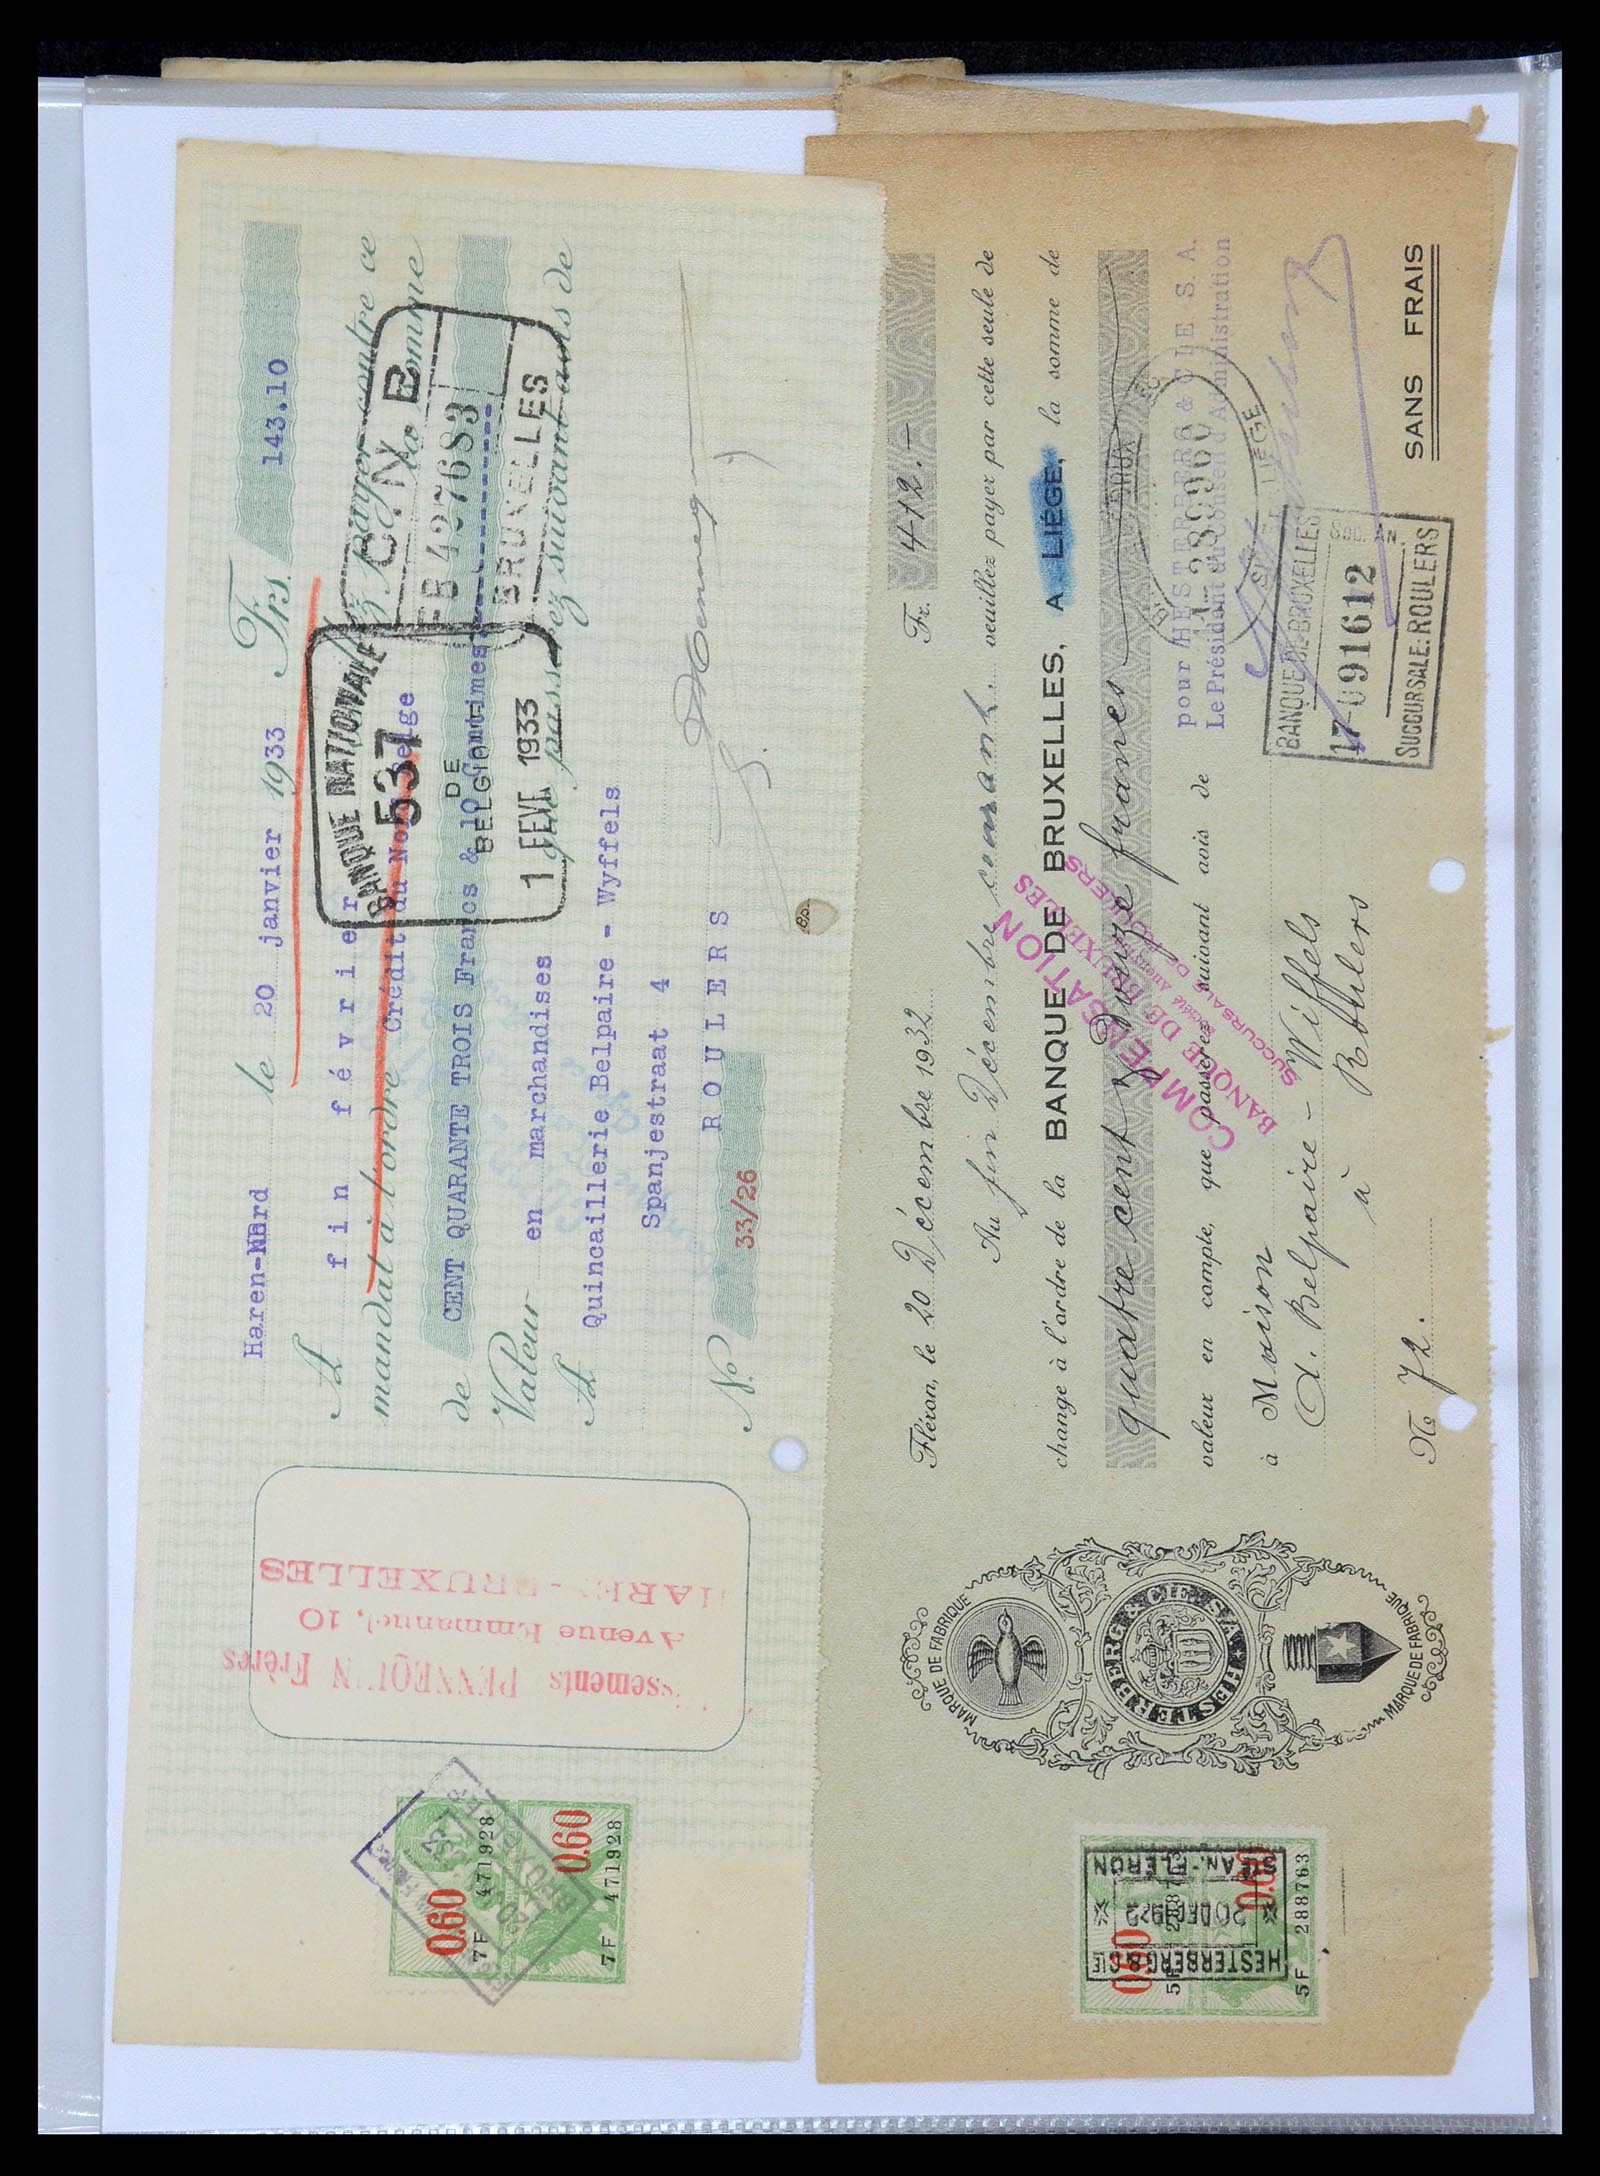 Haren-Nord le 20 janvier 1933 Frs. 143.10
A fin février payer contre ce
mandat à l'ordre Crédit du Nord Belge la somme
de CENT QUARANTE TROIS Francs & 10 Centimes
Valeur en marchandises que passerez suivant avis de
A Quincaillerie Belpaire - Wyffels
Spanjestraat 4
ROULERS
No. 33/26
BANQUE NATIONALE
537
DE
BELGIQUE
1 FEVR 1933
C N B
FB427683
BRUXELLES
es.
PENNEQUIN Frères
Avenue Emmanuel, 10
HAREN - BRUXELLES
0.60
7F 471928
0.60
7F 471928
Fléron, le 20 Décembre 1932 Fr. 412.-
Au fin Décembre courant. veuillez payer par cette seule de
change à l'ordre de la BANQUE DE BRUXELLES, A LIÉGE, la somme de
quatre cent douze francs
valeur en compte, que passerez suivant avis de
à Maison
A. Belpaire - Wiffels
à Roulers
No 72.
SANS FRAIS
pour HESTERBERG & CIE S. A.
Le Président du Conseil d'Administration
COMPENSATION
BANQUE DE BRUXELLES
Société Anonyme
SUCCURSALE DE ROULERS
LIÉGE
BANQUE DE BRUXELLES
SOC. AN.
17-091612
SUCCURSALE: ROULERS
MARQUE DE FABRIQUE
HESTERBERG & CIE. S.A.
MARQUE DE FABRIQUE
0.60
5F 288763
0.60
5F 288763
HESTERBERG & CIE
20 DEC 1932
Sté AN. FLERON